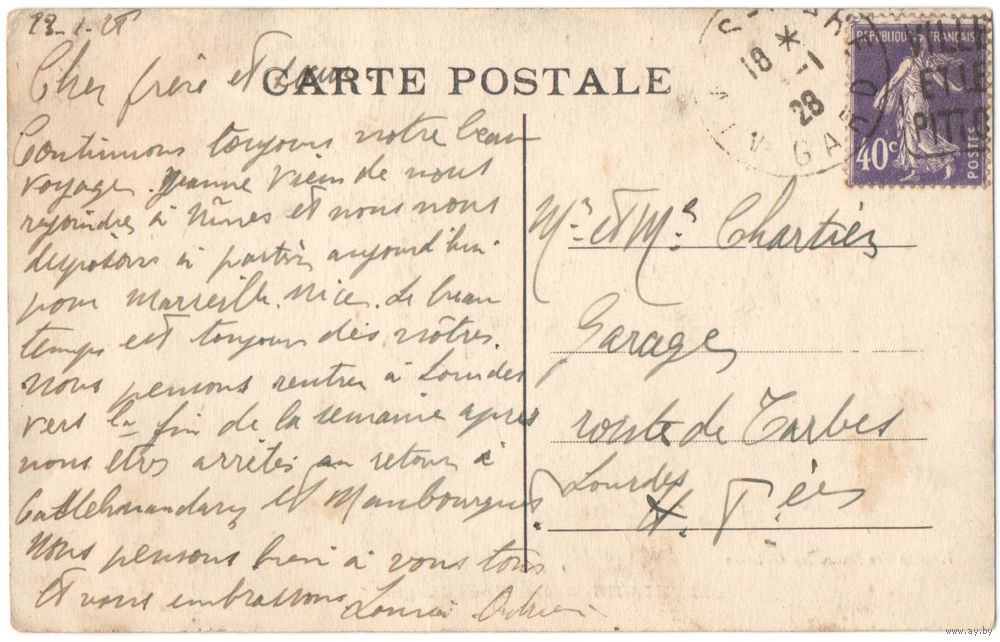 23-1-28
Cher frère et sœur
CARTE POSTALE
Continuons toujours notre beau
voyage. Jeanne vient de nous
rejoindre à Nîmes et nous nous
disposons à partir aujourd'hui
pour Marseille. Nice. Le beau
temps est toujours des nôtres.
Nous pensons rentrer à Lourdes
vers la fin de la semaine après
nous êtres arrêtés au retour à
Castelnaudary et Maubourguet.
Nous pensons bien à vous tous
et vous embrassons
18 * -1
28
GARD
REPUBLIQUE FRANÇAISE
40c
POSTES
VILLE
ET LE
PITTO
Mr et Me Chartier
Garage
route de Tarbes
Lourdes
H. P ées
www.ay.by